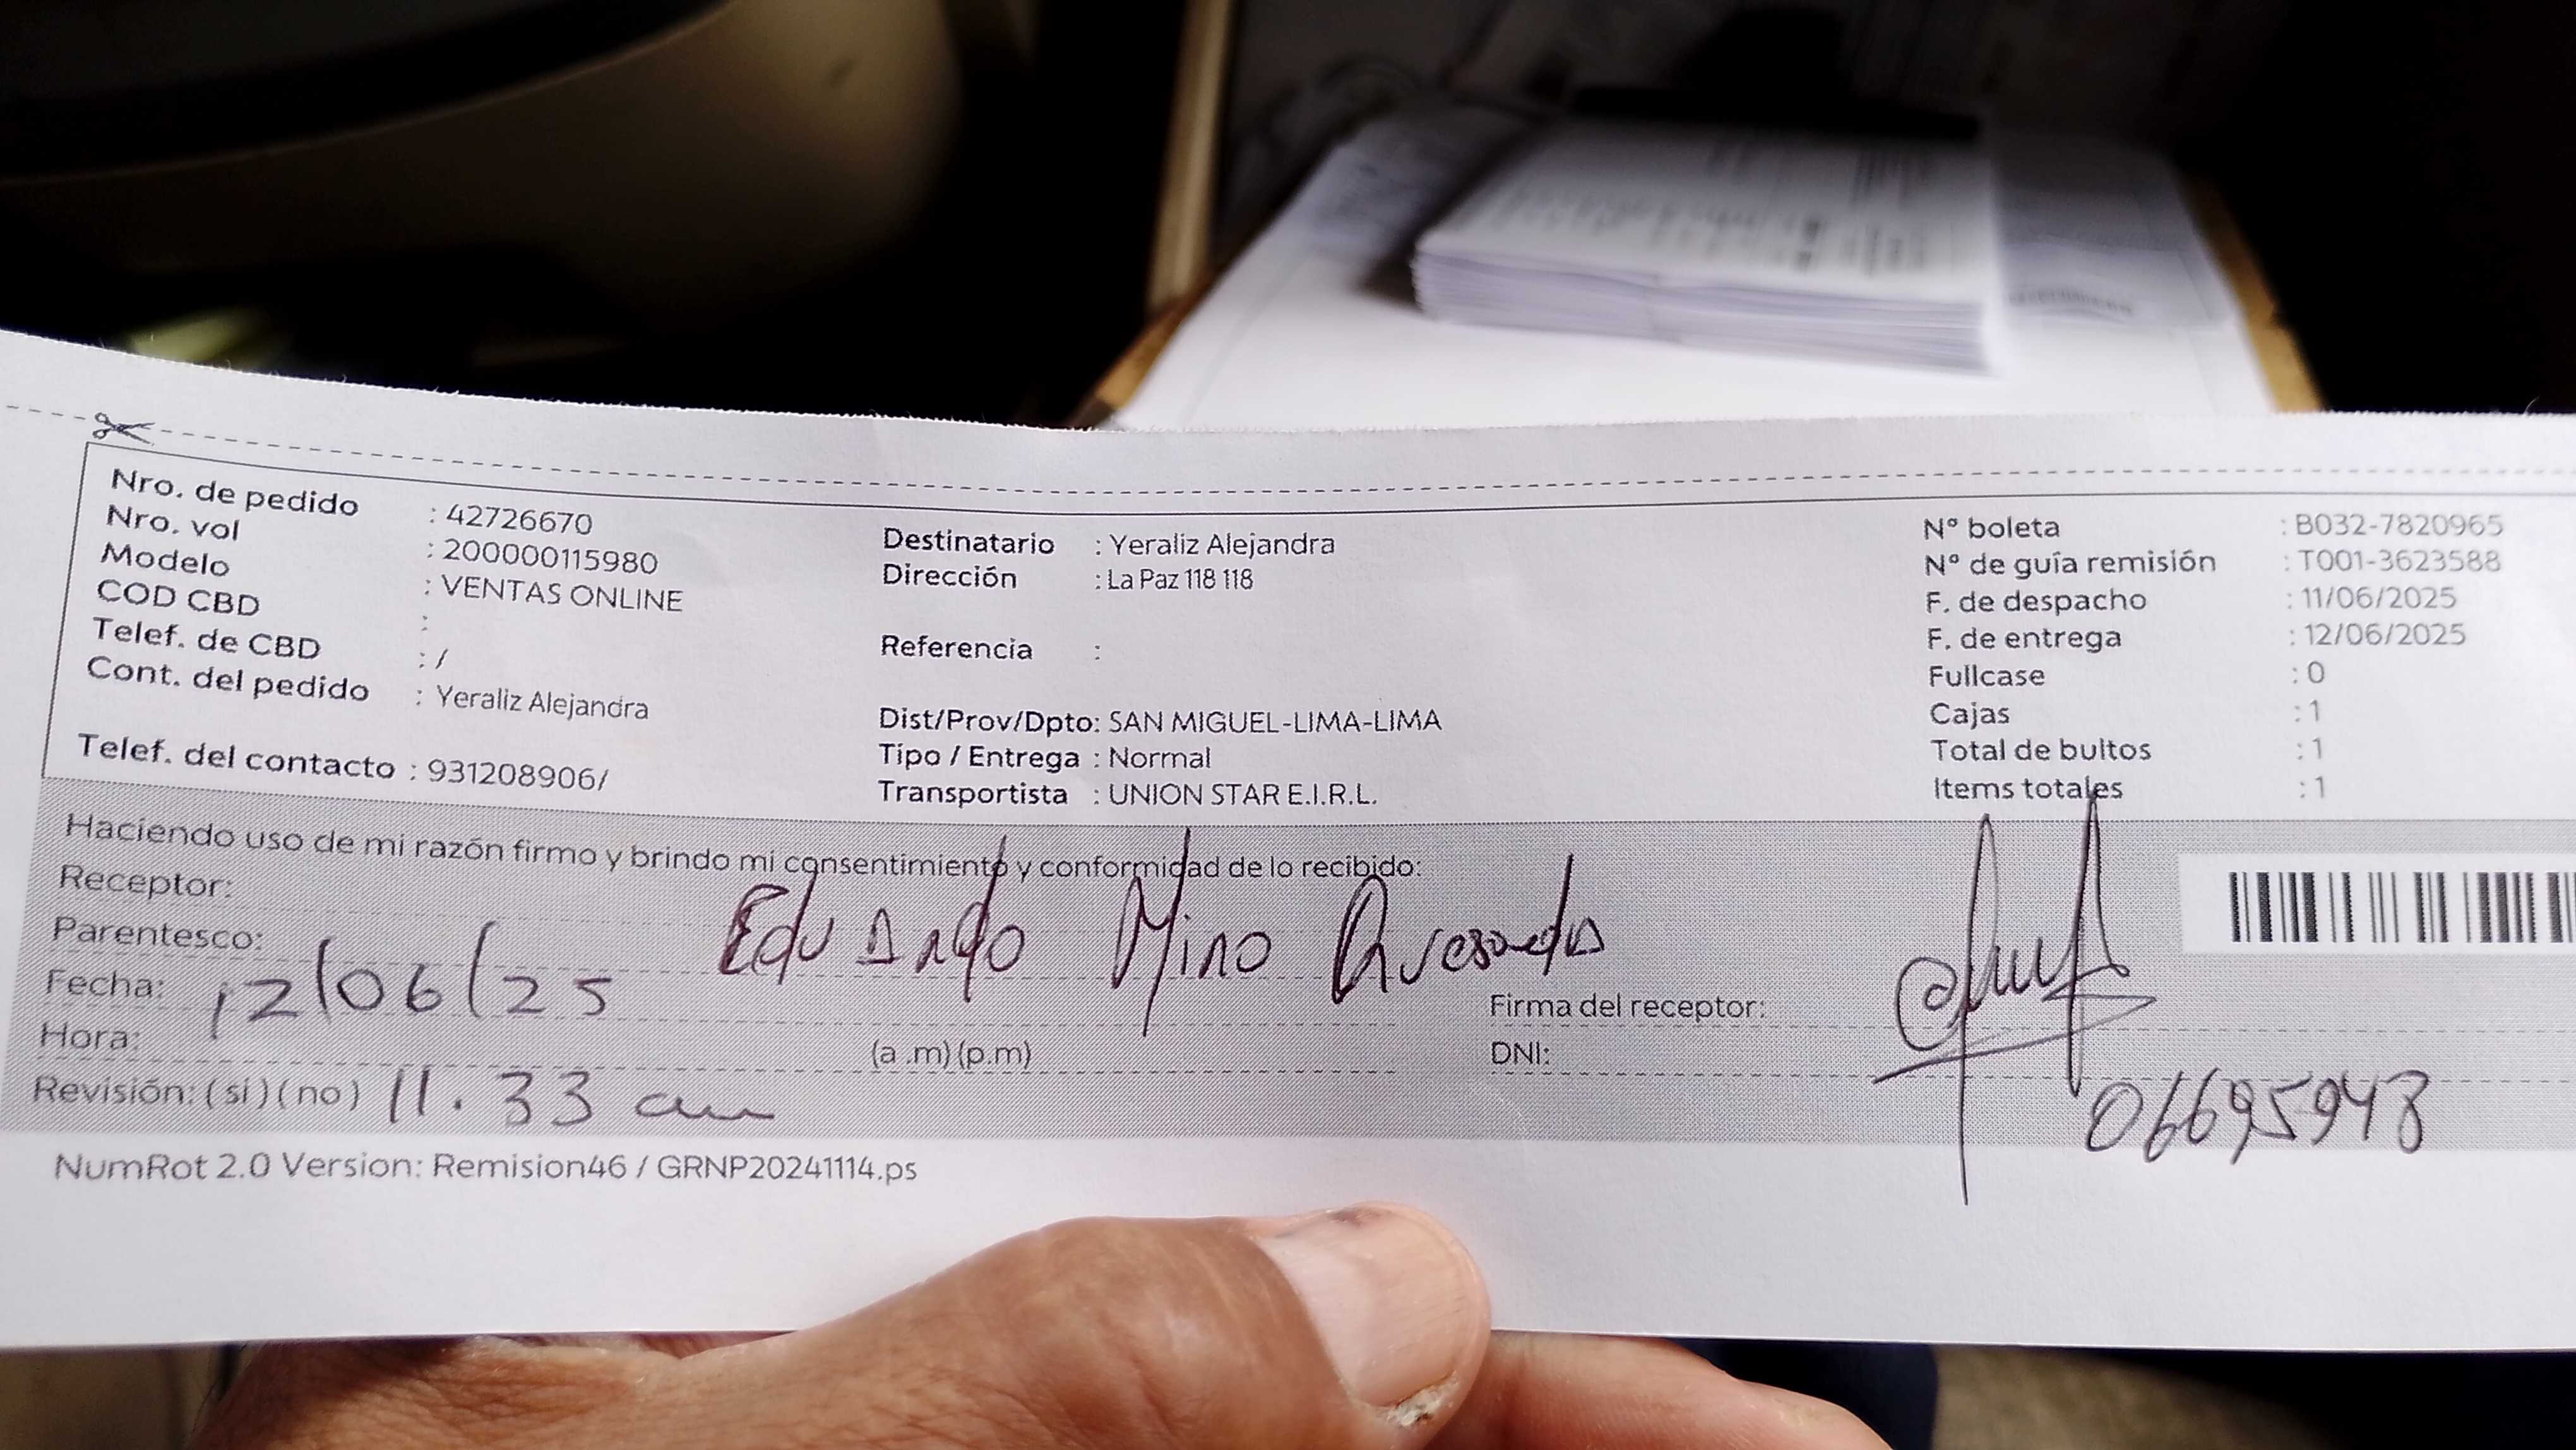 Nro. de pedido : 42726670
Nro. vol : 200000115980
Modelo : VENTAS ONLINE
COD CBD :
Telef. de CBD : /
Cont. del pedido : Yeraliz Alejandra
Telef. del contacto : 931208906/
Destinatario : Yeraliz Alejandra
Dirección : La Paz 118 118
Referencia :
Dist/Prov/Dpto: SAN MIGUEL-LIMA-LIMA
Tipo / Entrega : Normal
Transportista : UNION STAR E.I.R.L.
N° boleta : B032-7820965
N° de guía remisión : T001-3623588
F. de despacho : 11/06/2025
F. de entrega : 12/06/2025
Fullcase : 0
Cajas : 1
Total de bultos : 1
Items totales : 1
Haciendo uso de mi razón firmo y brindo mi consentimiento y conformidad de lo recibido:
Receptor:
Eduardo Miro Quesada
Parentesco:
Fecha: 12/06/25
Firma del receptor:
Hora: (a .m) (p.m)
DNI: 06695948
Revisión: ( si ) ( no ) 11.33 am
NumRot 2.0 Version: Remision46 / GRNP20241114.ps